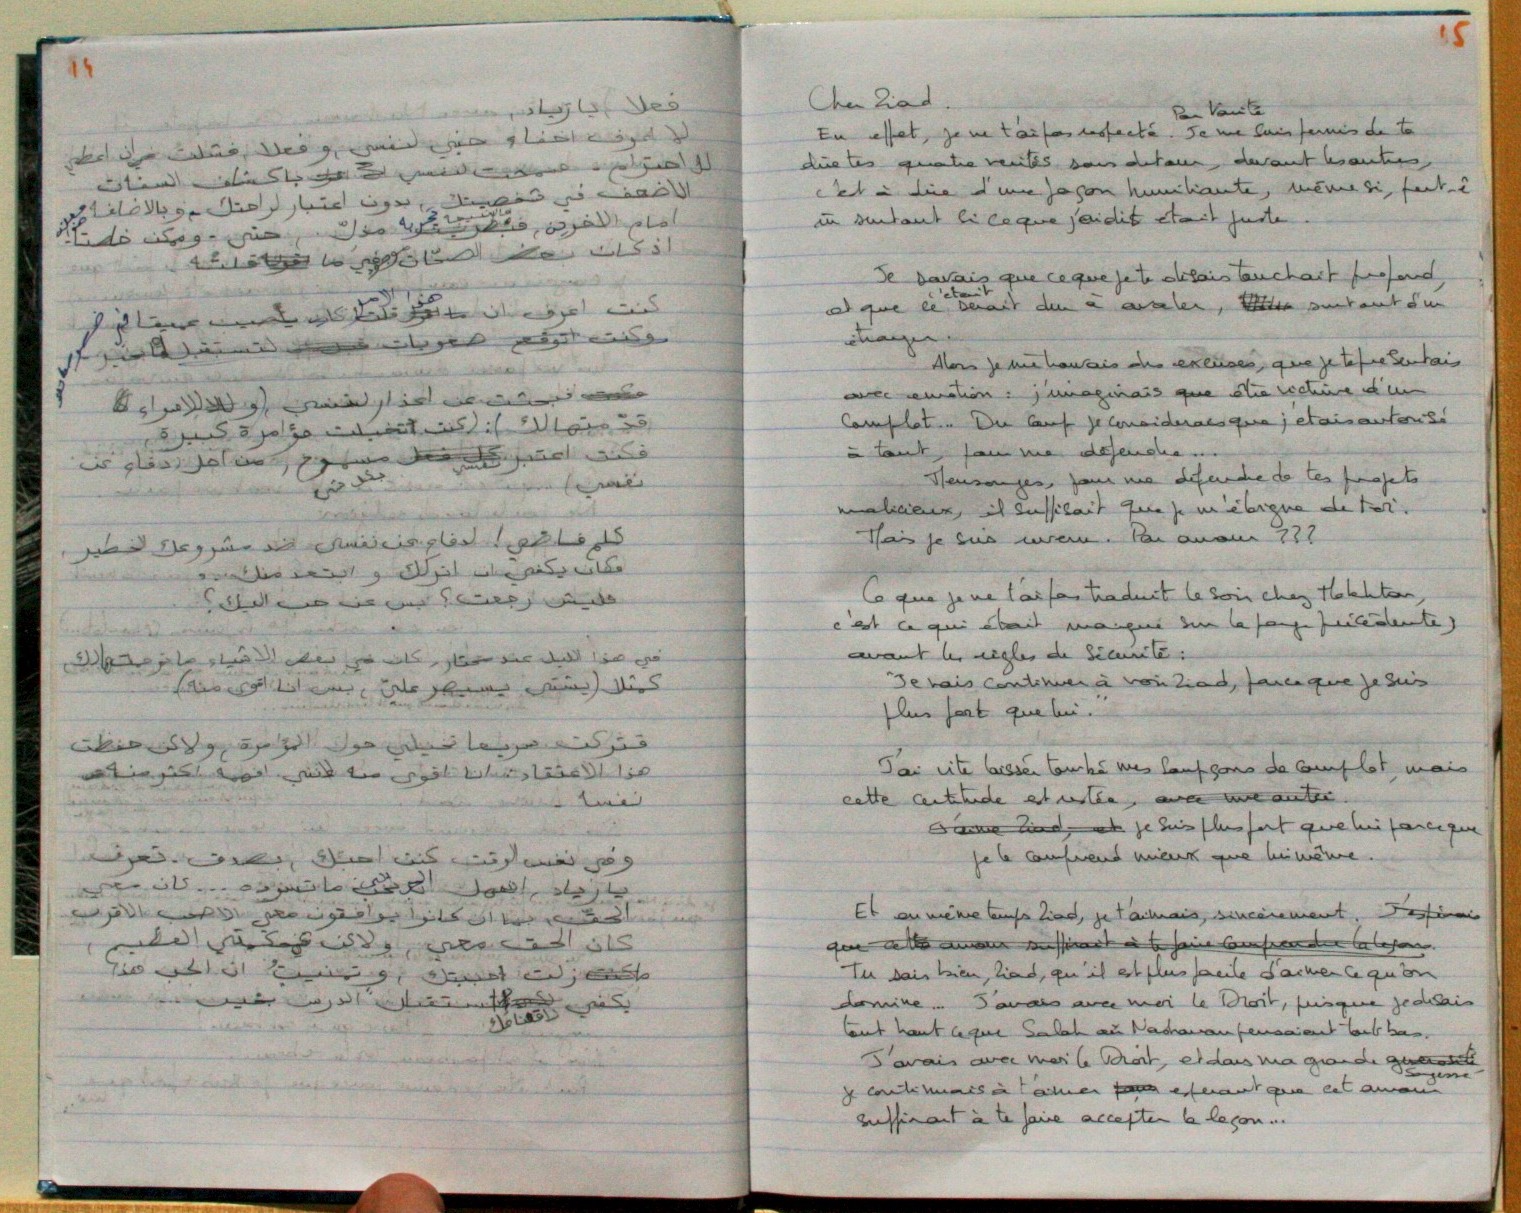 14
فعلا، يا زياد،
لا اعرف اخفاء جنبي لنفسي، وفعلا، فشلت من ان اعطي
لك احترام. سمحت لنفسي باكشاف السنات
الاضعف في شخصيتك، بدون اعتبار لراهتك. وبالاضافة
امام الاخرين، مذلّ، حتى. وممكن خاصتاً.
اذ كان بعض في ما قلته.
كنت اعرف ان هذا الامر يصيب عميقا في
وكنت اتوقع صعوبات لتستقبل
فبحثت عن اعذار لنفسي، (و
قدّمتها لك): (كنت اتخيلت مؤامرة كبيرة،
فكنت اعتبر نفسي مسموح، من اجل دفاع عن
نفسي)
كلام فاضي! لدفاع عن نفسي ضد مشروعك الخطير،
فكان يكفي ان اتركك و ابتعد منك..
فليش رجعت؟ بس عن حب اليك؟
في هذا الليل عند مختار، كان في بعض الاشياء ما ترجمتها لك
كمثلا (يشتي يسيطر عليّ، بس انا اقوى منه)
فتركت سريعا تخيلي حول المؤامرة، ولاكن حفظت
هذا الاعتقاد: انا اقوى منه لانني افهمه اكثر منه
نفسه.
وفي نفس الوقت كنت احبّك، بصدق. تعرف
يا زياد، اسهل ما تسوده... كان معي
الحقّ، بما ان كانوا يوافقون معي الاصحب الاقرب
كان الحق معي، ولاكن في حكمتي العظيم،
زلت احببتك، وتمنيتُ ان الحب هذا
يكفي لاستقبال الدرس
15
Cher Ziad.
En effet, je ne t'ai pas respecté. Par Vanité Je me suis permis de te
dire tes quatre vérités sans détour, devant les autres,
c'est à dire d'une façon humiliante, même si, peut-ê
surtout si ce que j'ai dit était juste.
Je savais que ce que je te disais touchait profond,
et que ce c'était serait dur à avaler, surtout d'un
étranger.
Alors je me trouvais des excuses, que je te présentais
avec émotion : j'imaginais que être victime d'un
complot... Du coup je considérais que j'étais autorisé
à tout, pour me défendre...
Mensonges, pour me défendre de tes projets
malicieux, il suffisait que je m'éloigne de toi.
Mais je suis revenu. Par amour ???
Ce que je ne t'ai pas traduit le soir chez Mokhtar,
c'est ce qui était marqué sur la page précédente,
avant les règles de sécurité :
"Je vais continuer à voir Ziad, parce que je suis
plus fort que lui."
J'ai vite laissé tombé mes soupçons de complot, mais
cette certitude est restée, avec une autre.
J'aime Ziad, et je suis plus fort que lui parce que
je le comprend mieux que lui même.
Et en même temps Ziad, je t'aimais, sincèrement. J'espérais
que cette amour suffirait à te faire comprendre la leçon.
Tu sais bien, Ziad, qu'il est plus facile d'aimer ce qu'on
domine... J'avais avec moi le Droit, puisque je disais
tout haut ce que Salah et Nashwan pensaient tout bas.
J'avais avec moi le Droit, et dans ma grande générosité
sagesse
je continuais à t'aimer pour espérant que cet amour
suffirait à te faire accepter la leçon...